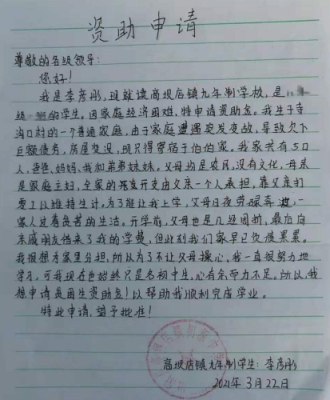 资助申请
尊敬的各级领导:
您好!
我是李彦彤,现就读高坝店镇九年制学校,是八年
级的学生。因家庭经济困难,特申请资助金。我生于寺
沟口村的一个普通家庭,由于家庭遭遇突发变故,导致欠下
巨额债务,房屋受没,现只得寄宿于伯伯家。我家共有5口
人,爸爸、妈妈、我和弟弟妹妹,父母均是农民,没有文化,母亲
是家庭主妇,全家的开支由父亲一个人承担,靠父亲打
零工以维持生计,为了能让我上学,父母日夜劳碌奔波,一
家人过着贫苦的生活。开学前,父母也是几经周折,最后向
亲戚朋友借来了我的学费,但此刻我们家早已负债累累。
我很想为家里分担,所以为了不让父母操心,我一直很努力地
学习,可我现在始终只是名初中生,心有余而力不足。所以,我
想申请贫困生资助金!以帮助我顺利完成学业。
特此申请,望予批准!
高坝店镇九年制学生:李彦彤
2021年3月22日